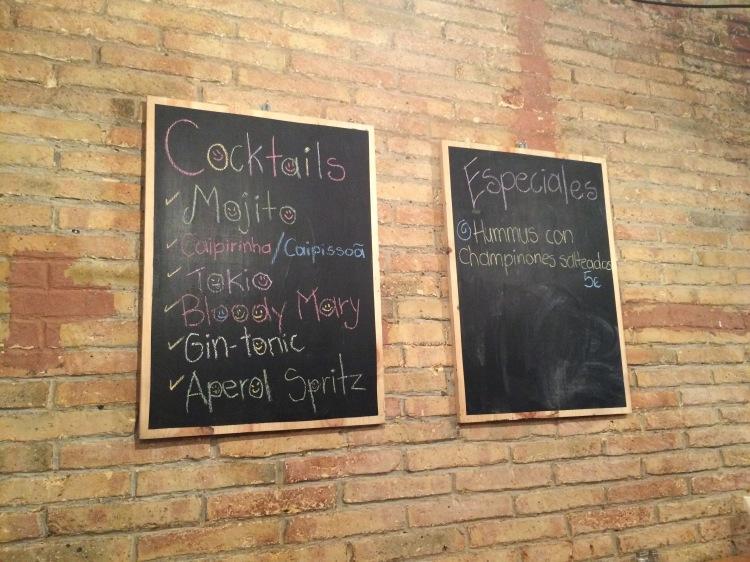 Cocktails
Mojito
Caipirinha/Caipissoã
Tokio
Bloody Mary
Gin-tonic
Aperol Spritz
Especiales
Hummus con
Champiñones salteados
5€